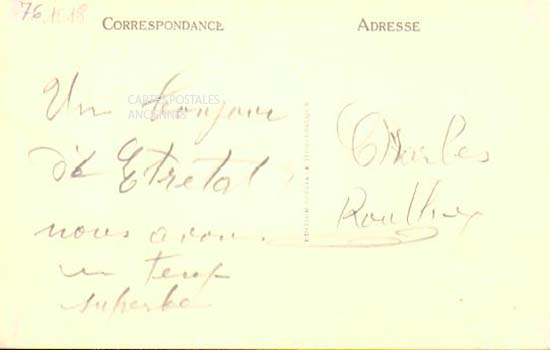 76 1518
CORRESPONDANCE
ADRESSE
CARTES POSTALES
ANCIENNES
Un bonjour
d'Etretat
nous avons
un temps
superbe
Charles